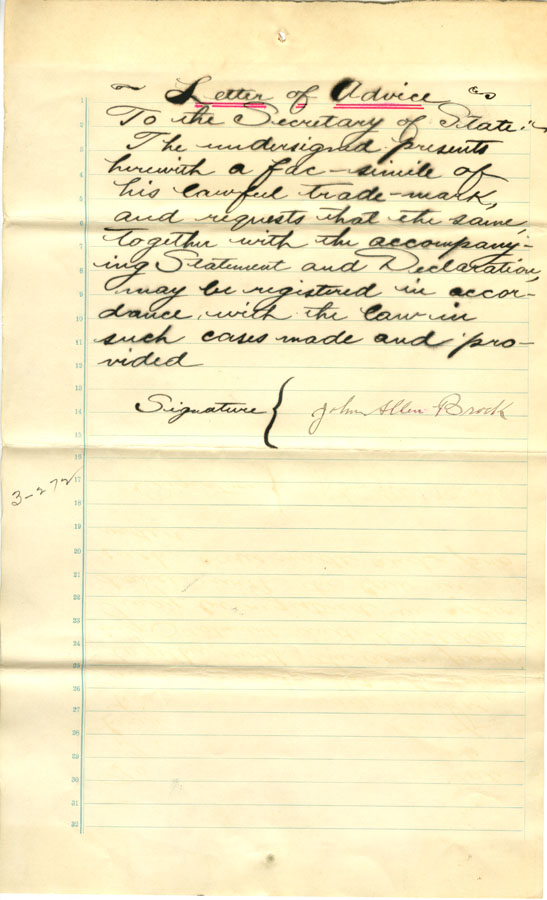 Letter of Advice
To the Secretary of State:
The undersigned presents
herewith a fac-simile of
his lawful trade-mark,
and requests that the same,
together with the accompany-
ing Statement and Declaration,
may be registered in accor-
dance with the law in
such cases made and pro-
vided
Signature { John Allen Brock
3-272
1
2
3
4
5
6
7
8
9
10
11
12
13
14
15
16
17
18
19
20
21
22
23
24
25
26
27
28
29
30
31
32